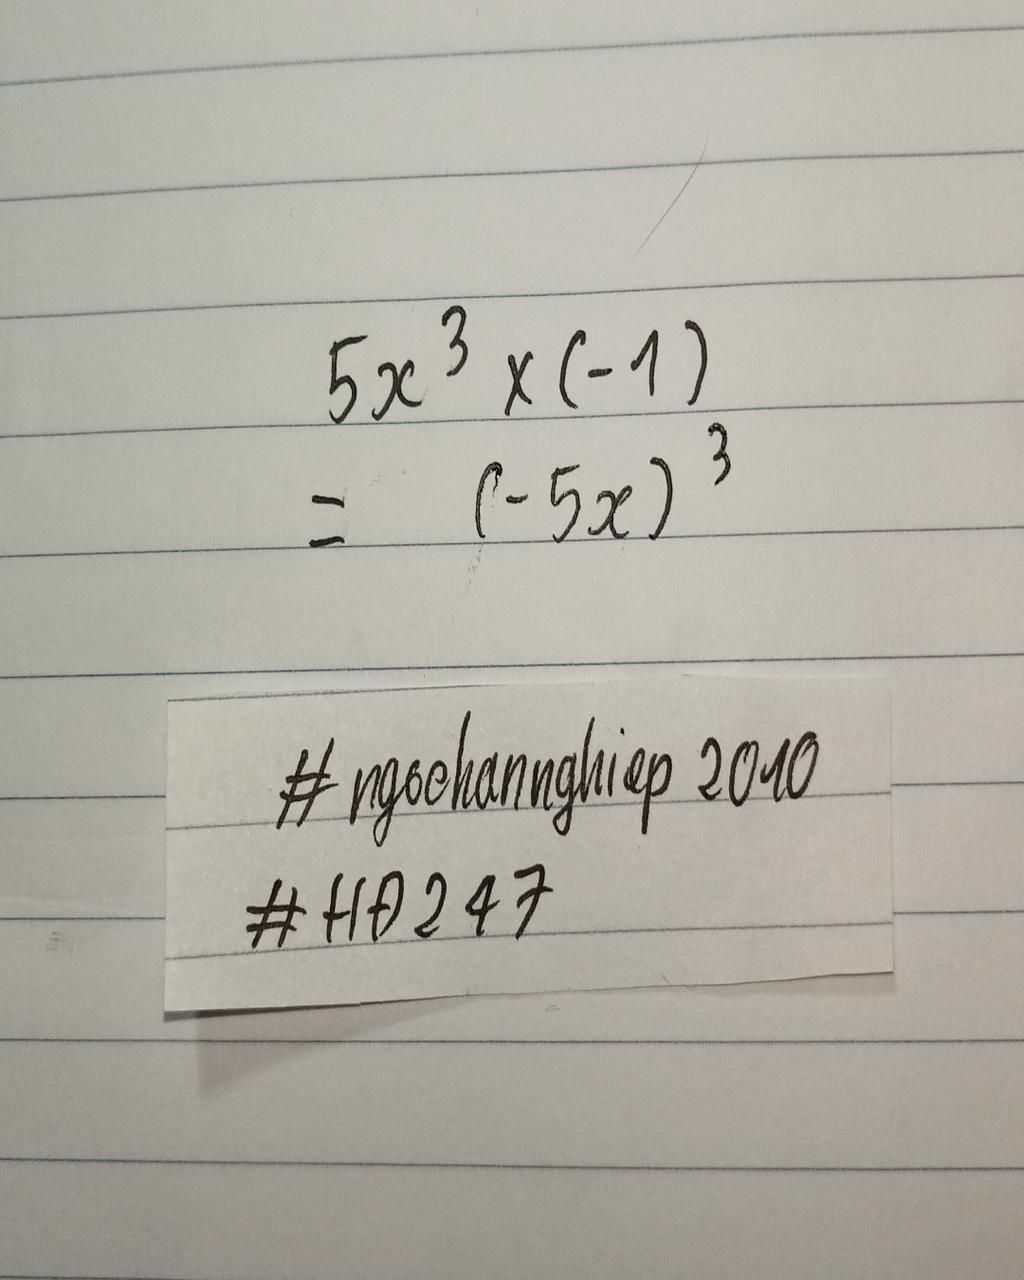 5x³ x (-1)
= (-5x)³
# ngochannghiep 2010
# HĐ 247